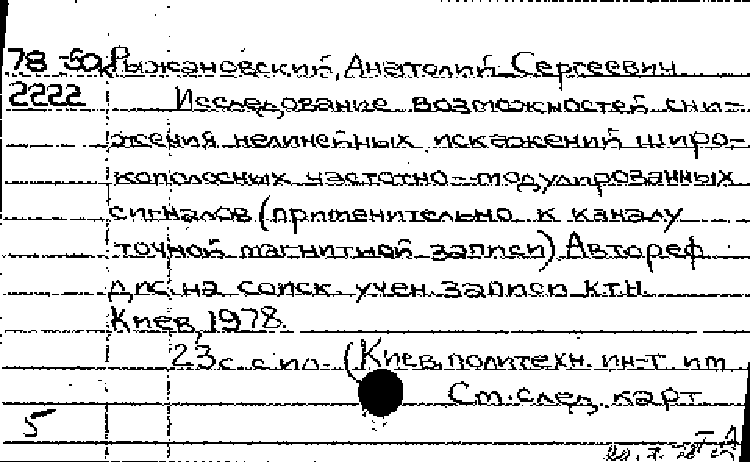 78-50 Рыжановский, Анатолий Сергеевич
2222 Исследование возможностей сни-
жения нелинейных искажений широ-
кополосных частотно-модулированных
сигналов (применительно к каналу
точной магнитной записи) Автореф
дис. на соиск. учен. записи к.т.н.
Киев, 1978.
23 с. с ил. (Киев. политехн. ин-т. им
См. след. карт
5